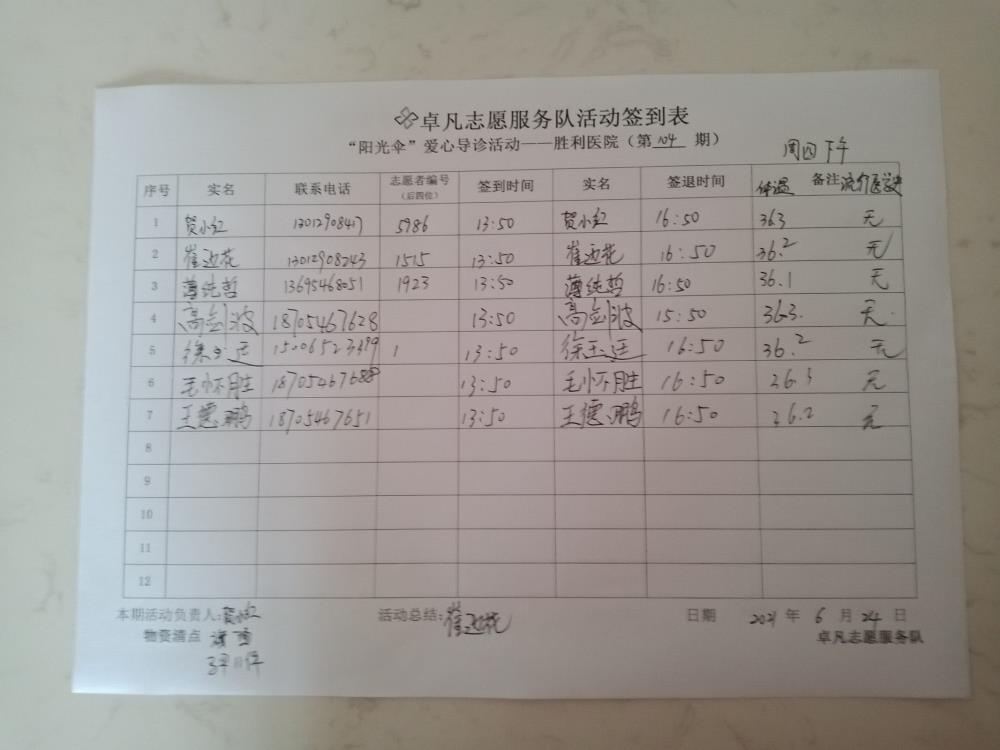 卓凡志愿服务队活动签到表
“阳光伞”爱心导诊活动——胜利医院（第 104 期）
周四下午
序号 实名 联系电话 志愿者编号（后四位） 签到时间 实名 签退时间 体温 备注 流行医学史
1 贺小红 13012908417 5986 13:50 贺小红 16:50 363 无
2 崔迎花 13012908243 1515 13:50 崔迎花 16:50 36.2 无
3 薄纯哲 13695468051 1923 13:50 薄纯哲 16:50 36.1 无
4 高剑波 18705467628 13:50 高剑波 15:50 363. 无
5 徐玉廷 15006523399 1 13:50 徐玉廷 16:50 36.2 无
6 毛怀胜 18705467688 13:50 毛怀胜 16:50 36.3 无
7 王德鹏 18705467651 13:50 王德鹏 16:50 36.2 无
8
9
10
11
12
本期活动负责人:贺小红 活动总结:崔迎花 日期 2021 年 6 月 24 日
物资清点 卓凡志愿服务队